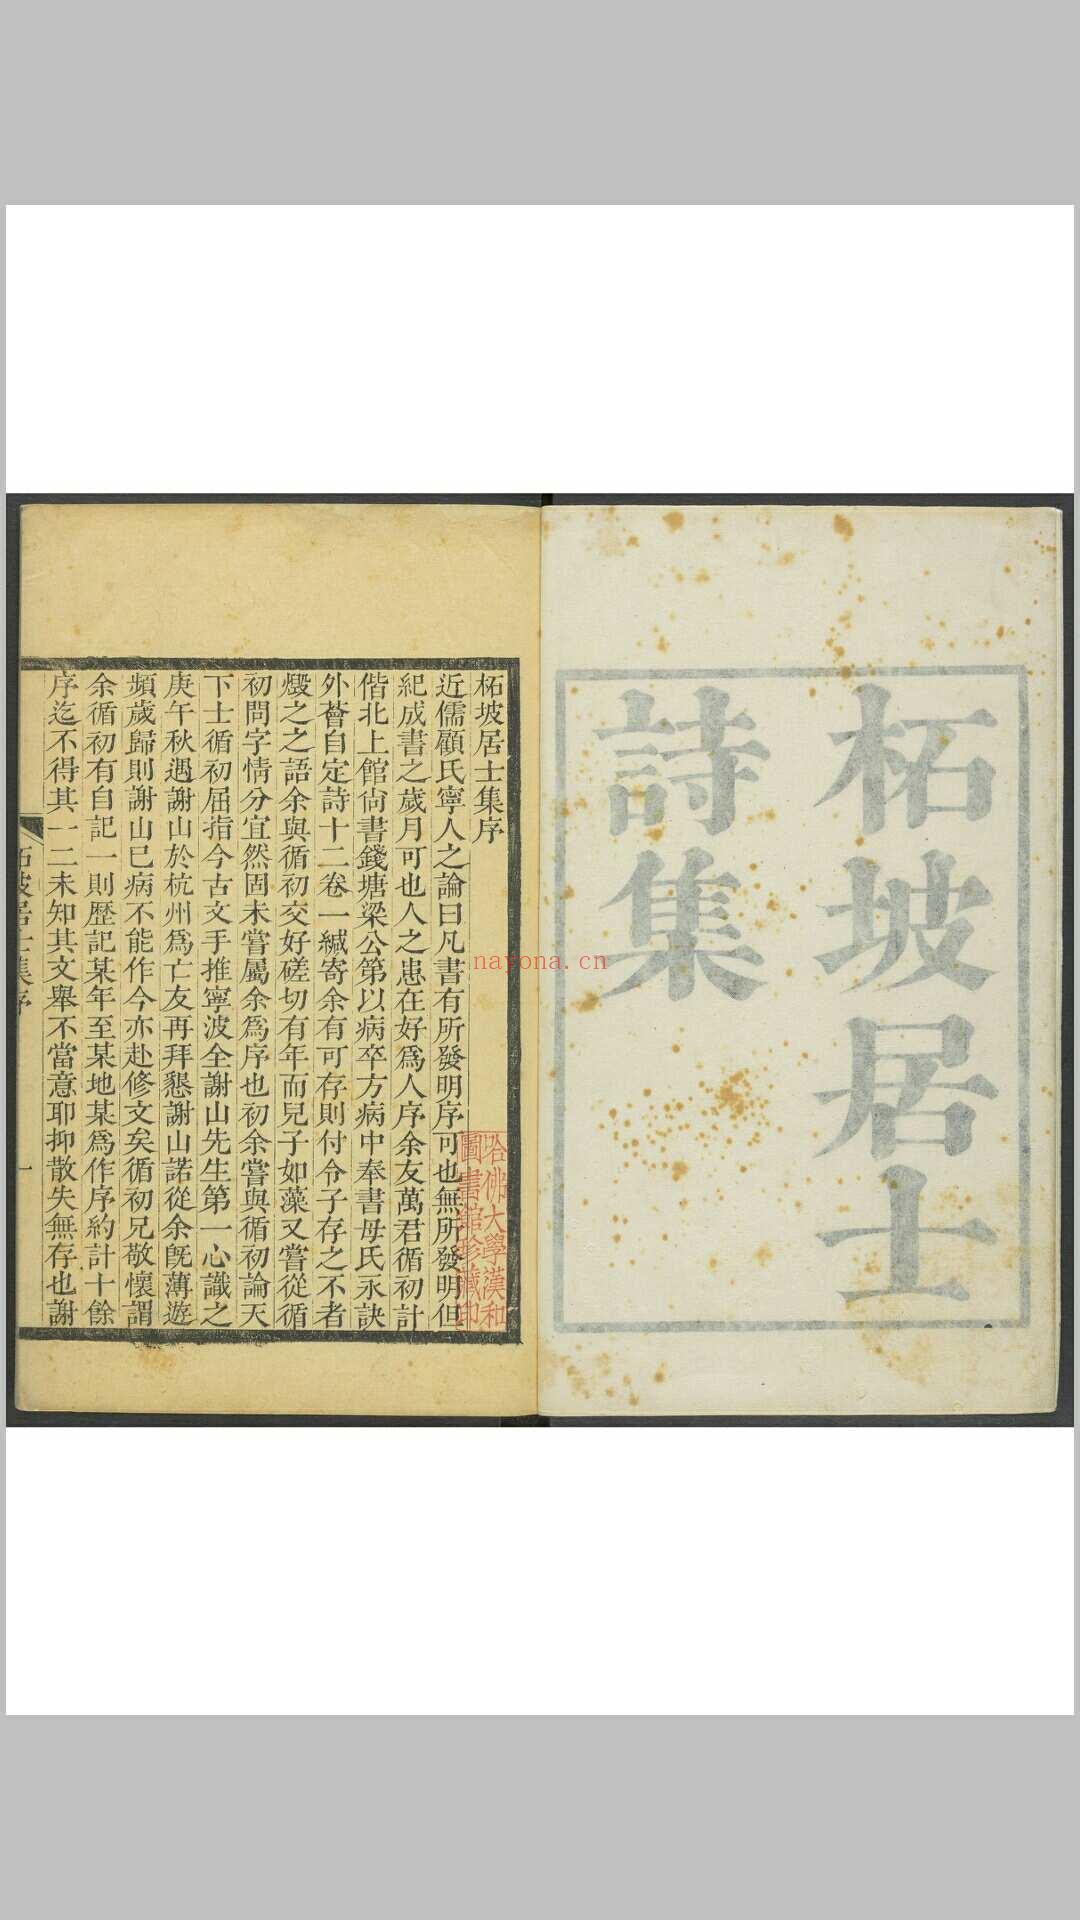 柘坡居士
詩集
柘坡居士集序
近儒顧氏寧人之論曰凡書有所發明序可也無所發明但
紀成書之歲月可也人之患在好爲人序余友萬君循初計
偕北上館尚書錢塘梁公第以病卒方病中奉書母氏永訣
外薈自定詩十二卷一緘寄余有可存則付令子存之不者
燬之之語余與循初交好磋切有年而兒子如藻又嘗從循
初問字情分宜然固未嘗屬余爲序也初余嘗與循初論天
下士循初屈指今古文手推寧波全謝山先生第一心識之
庚午秋遇謝山於杭州爲亡友再拜懇謝山諾從余旣薄遊
頻歲歸則謝山已病不能作今亦赴修文矣循初兄敬懷謂
余循初有自記一則歷記某年至某地某爲作序約計十餘
序迄不得其一二未知其文舉不當意耶抑散失無存也謝
柘坡居士集序
一
哈佛大學漢和
圖書館珍藏印
nayona.cn